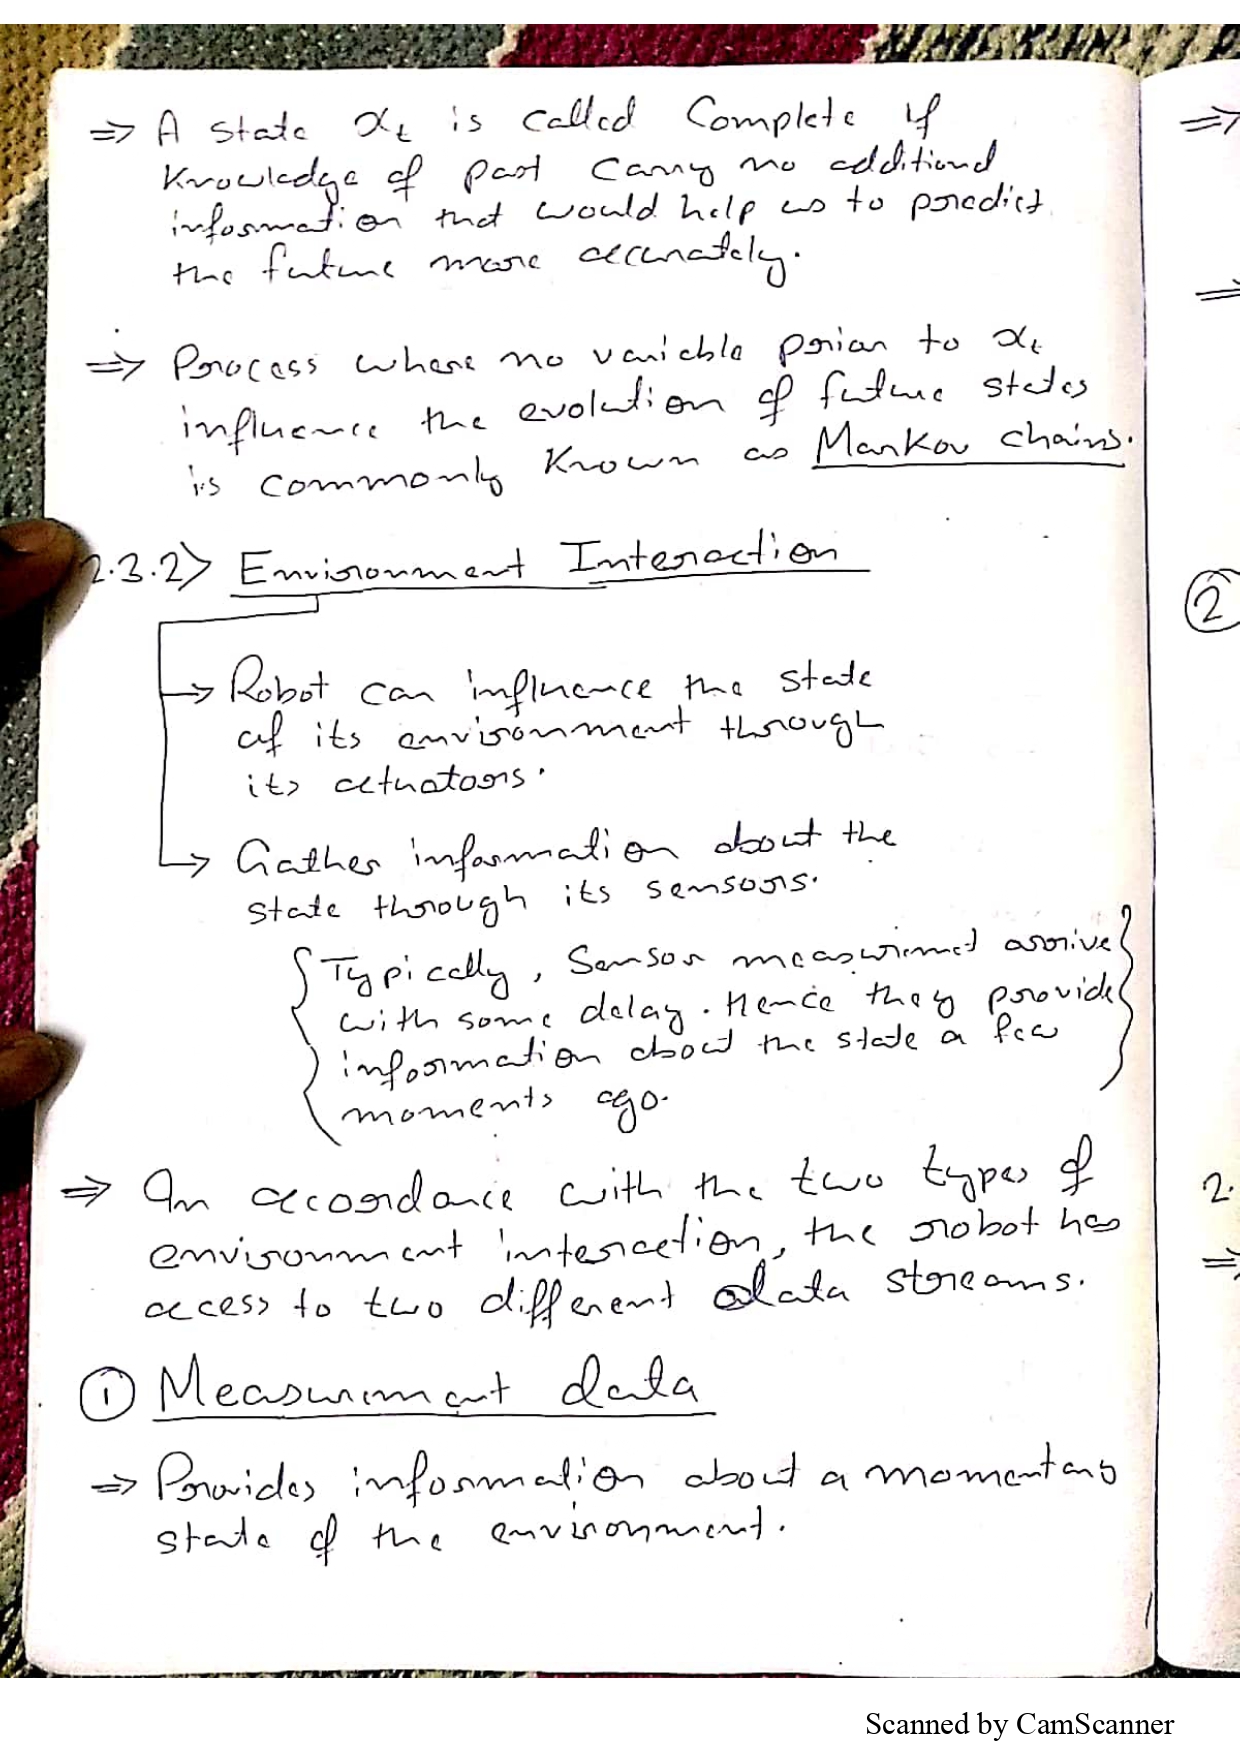 ⇒ A state x_t is called Complete if
Knowledge of past carry no additional
information that would help us to predict
the future more accurately.
⇒ Process where no variable prior to x_t
influence the evolution of future states
is commonly known as Markov chains.
2.3.2> Environment Interaction
→ Robot can influence the state
of its environment through
its actuators.
→ Gather information about the
state through its sensors.
{ Typically, Sensor measurement arrive }
with some delay. Hence they provide
information about the state a few
moments ago.
⇒ In accordance with the two types of
environment interaction, the robot has
access to two different data streams.
① Measurement data
⇒ Provides information about a momentary
state of the environment.
⇒
②
2.
⇒
Scanned by CamScanner